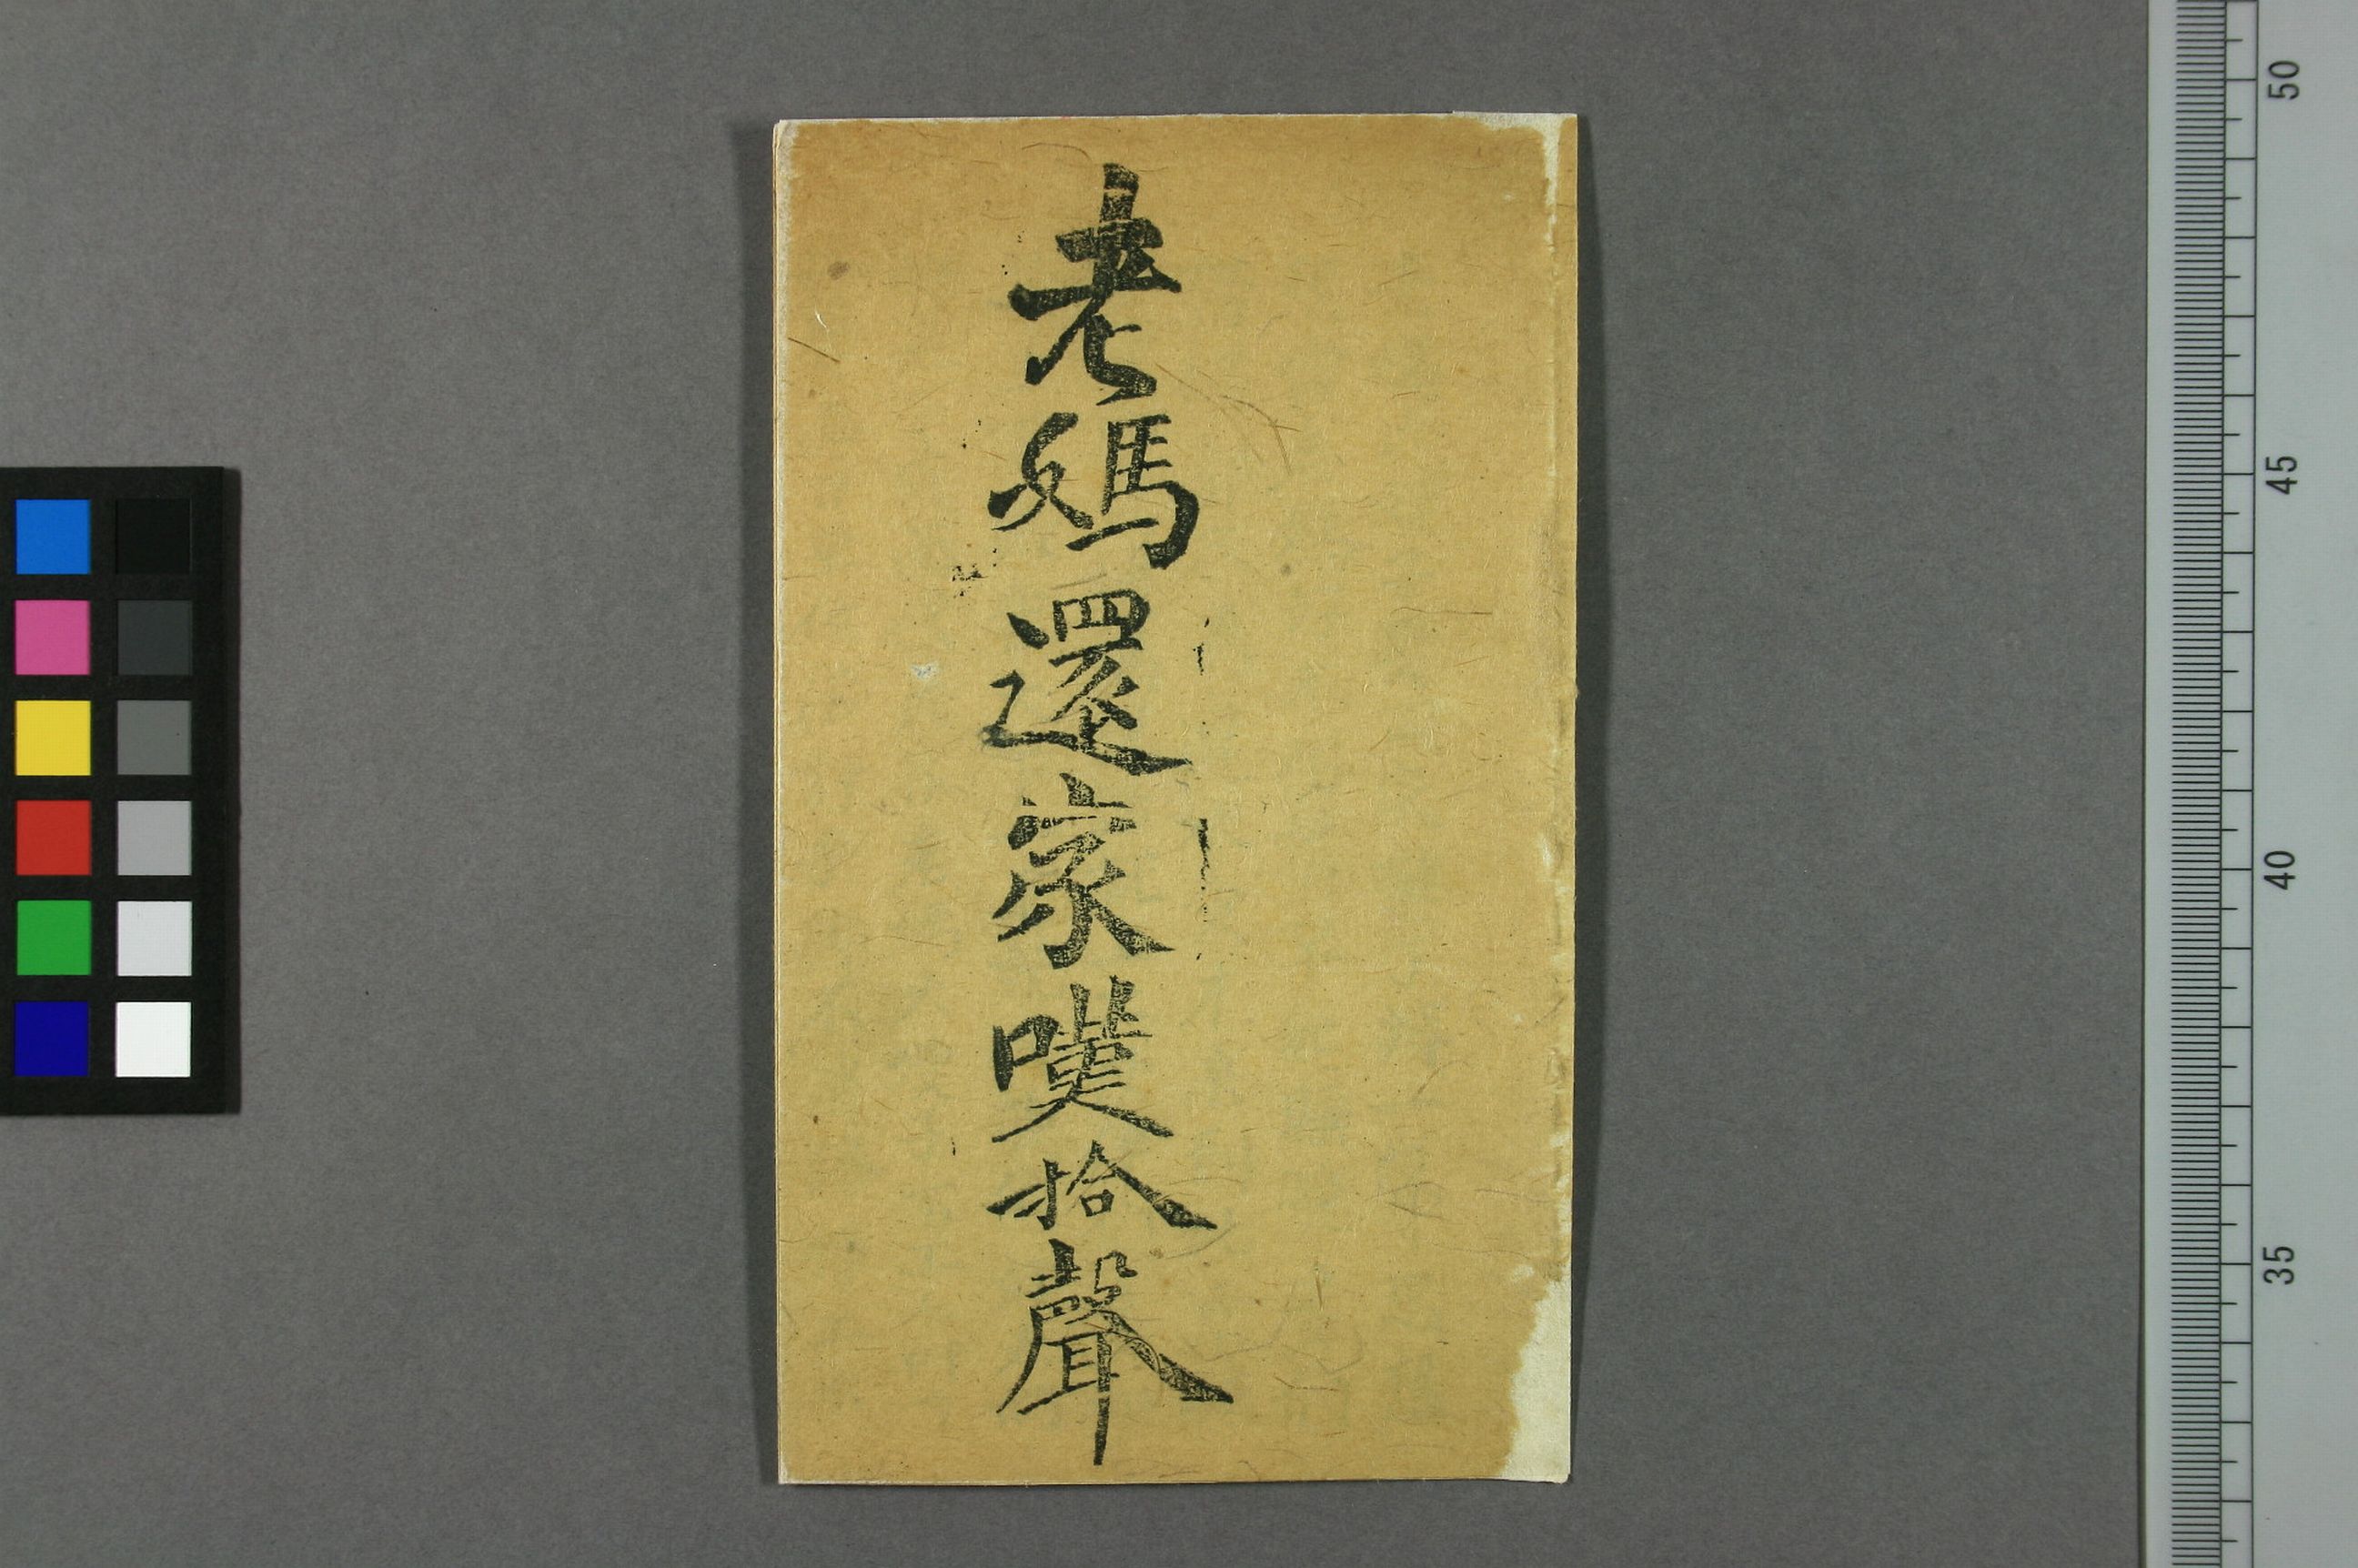 老媽還家嘆拾聲
50
45
40
35